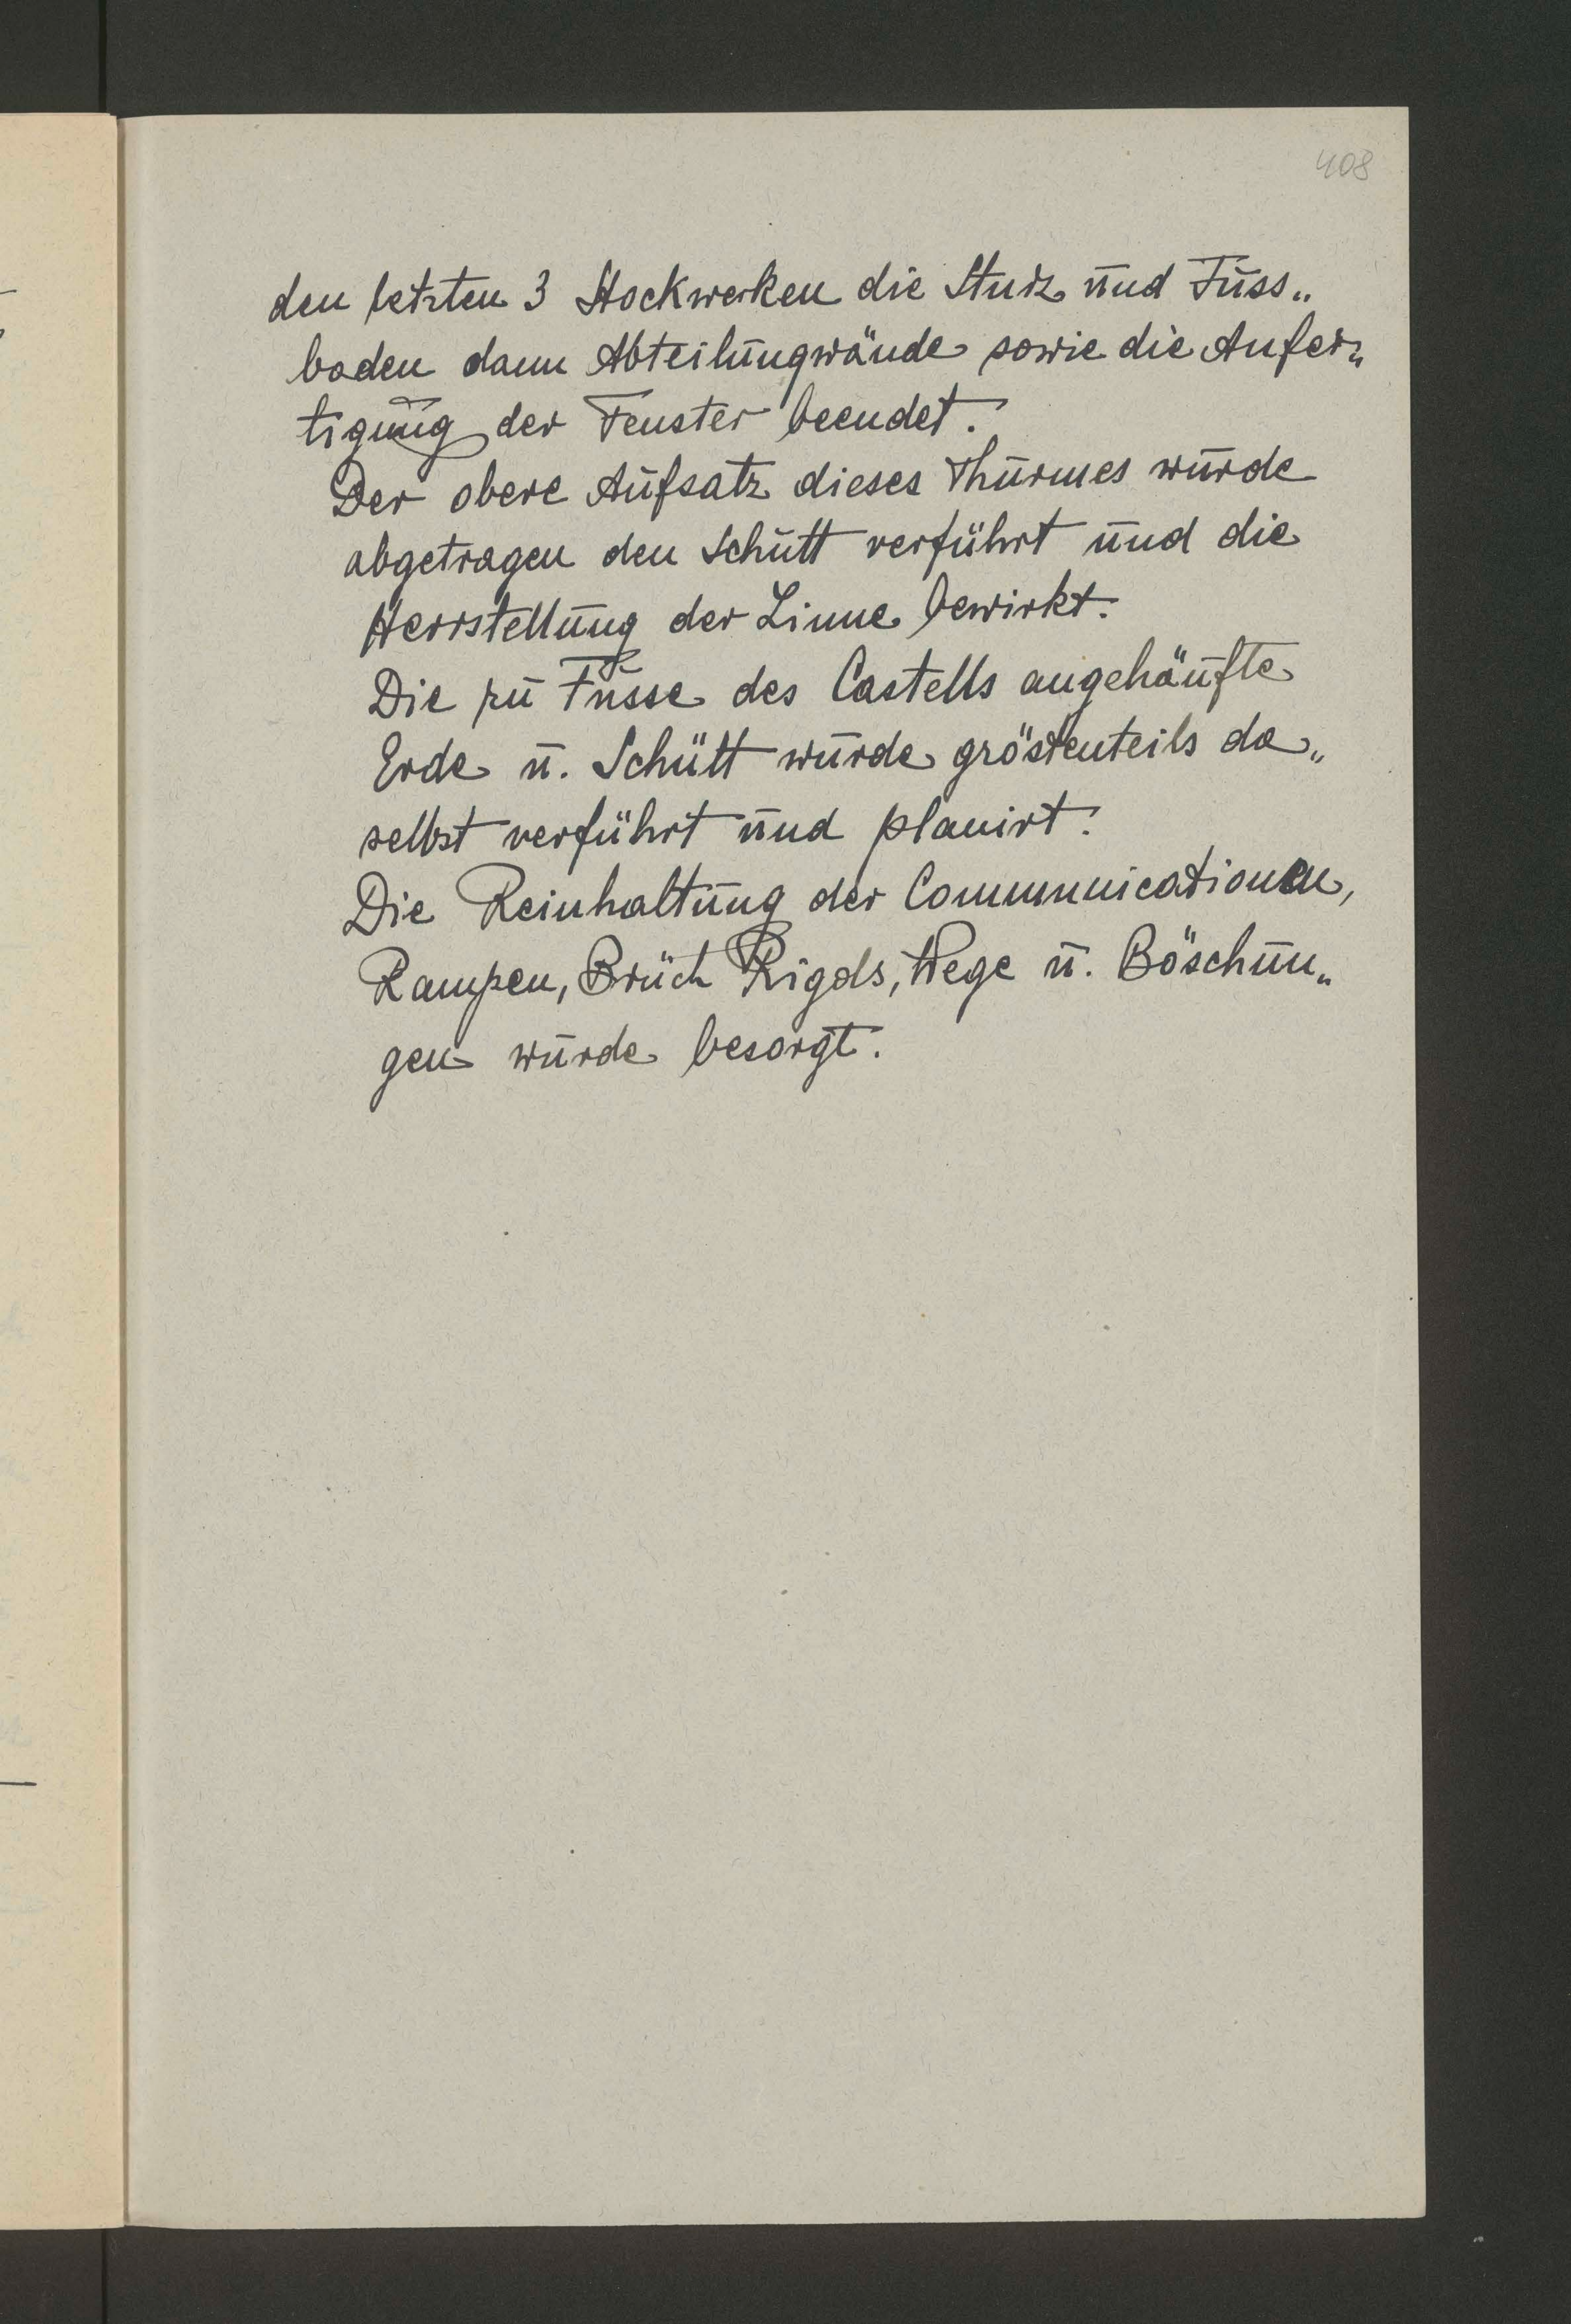 408
den letzten 3 Stockwerken die Sturz und Fuss„
boden dann Abteilungwände sowie die Anfer„
tigung der Fenster beendet.
Der obere Aufsatz dieses Thurmes wurde
abgetragen den Schutt verführt und die
Herrstellung der Linne bewirkt.
Die zu Fusse des Castells angehäufte
Erde u. Schütt wurde gröstenteils da„
selbst verführt und planirt.
Die Reinhaltung der Communicationen,
Rampen, Brüch Rigols, Wege u. Böschun„
gen wurde besorgt.